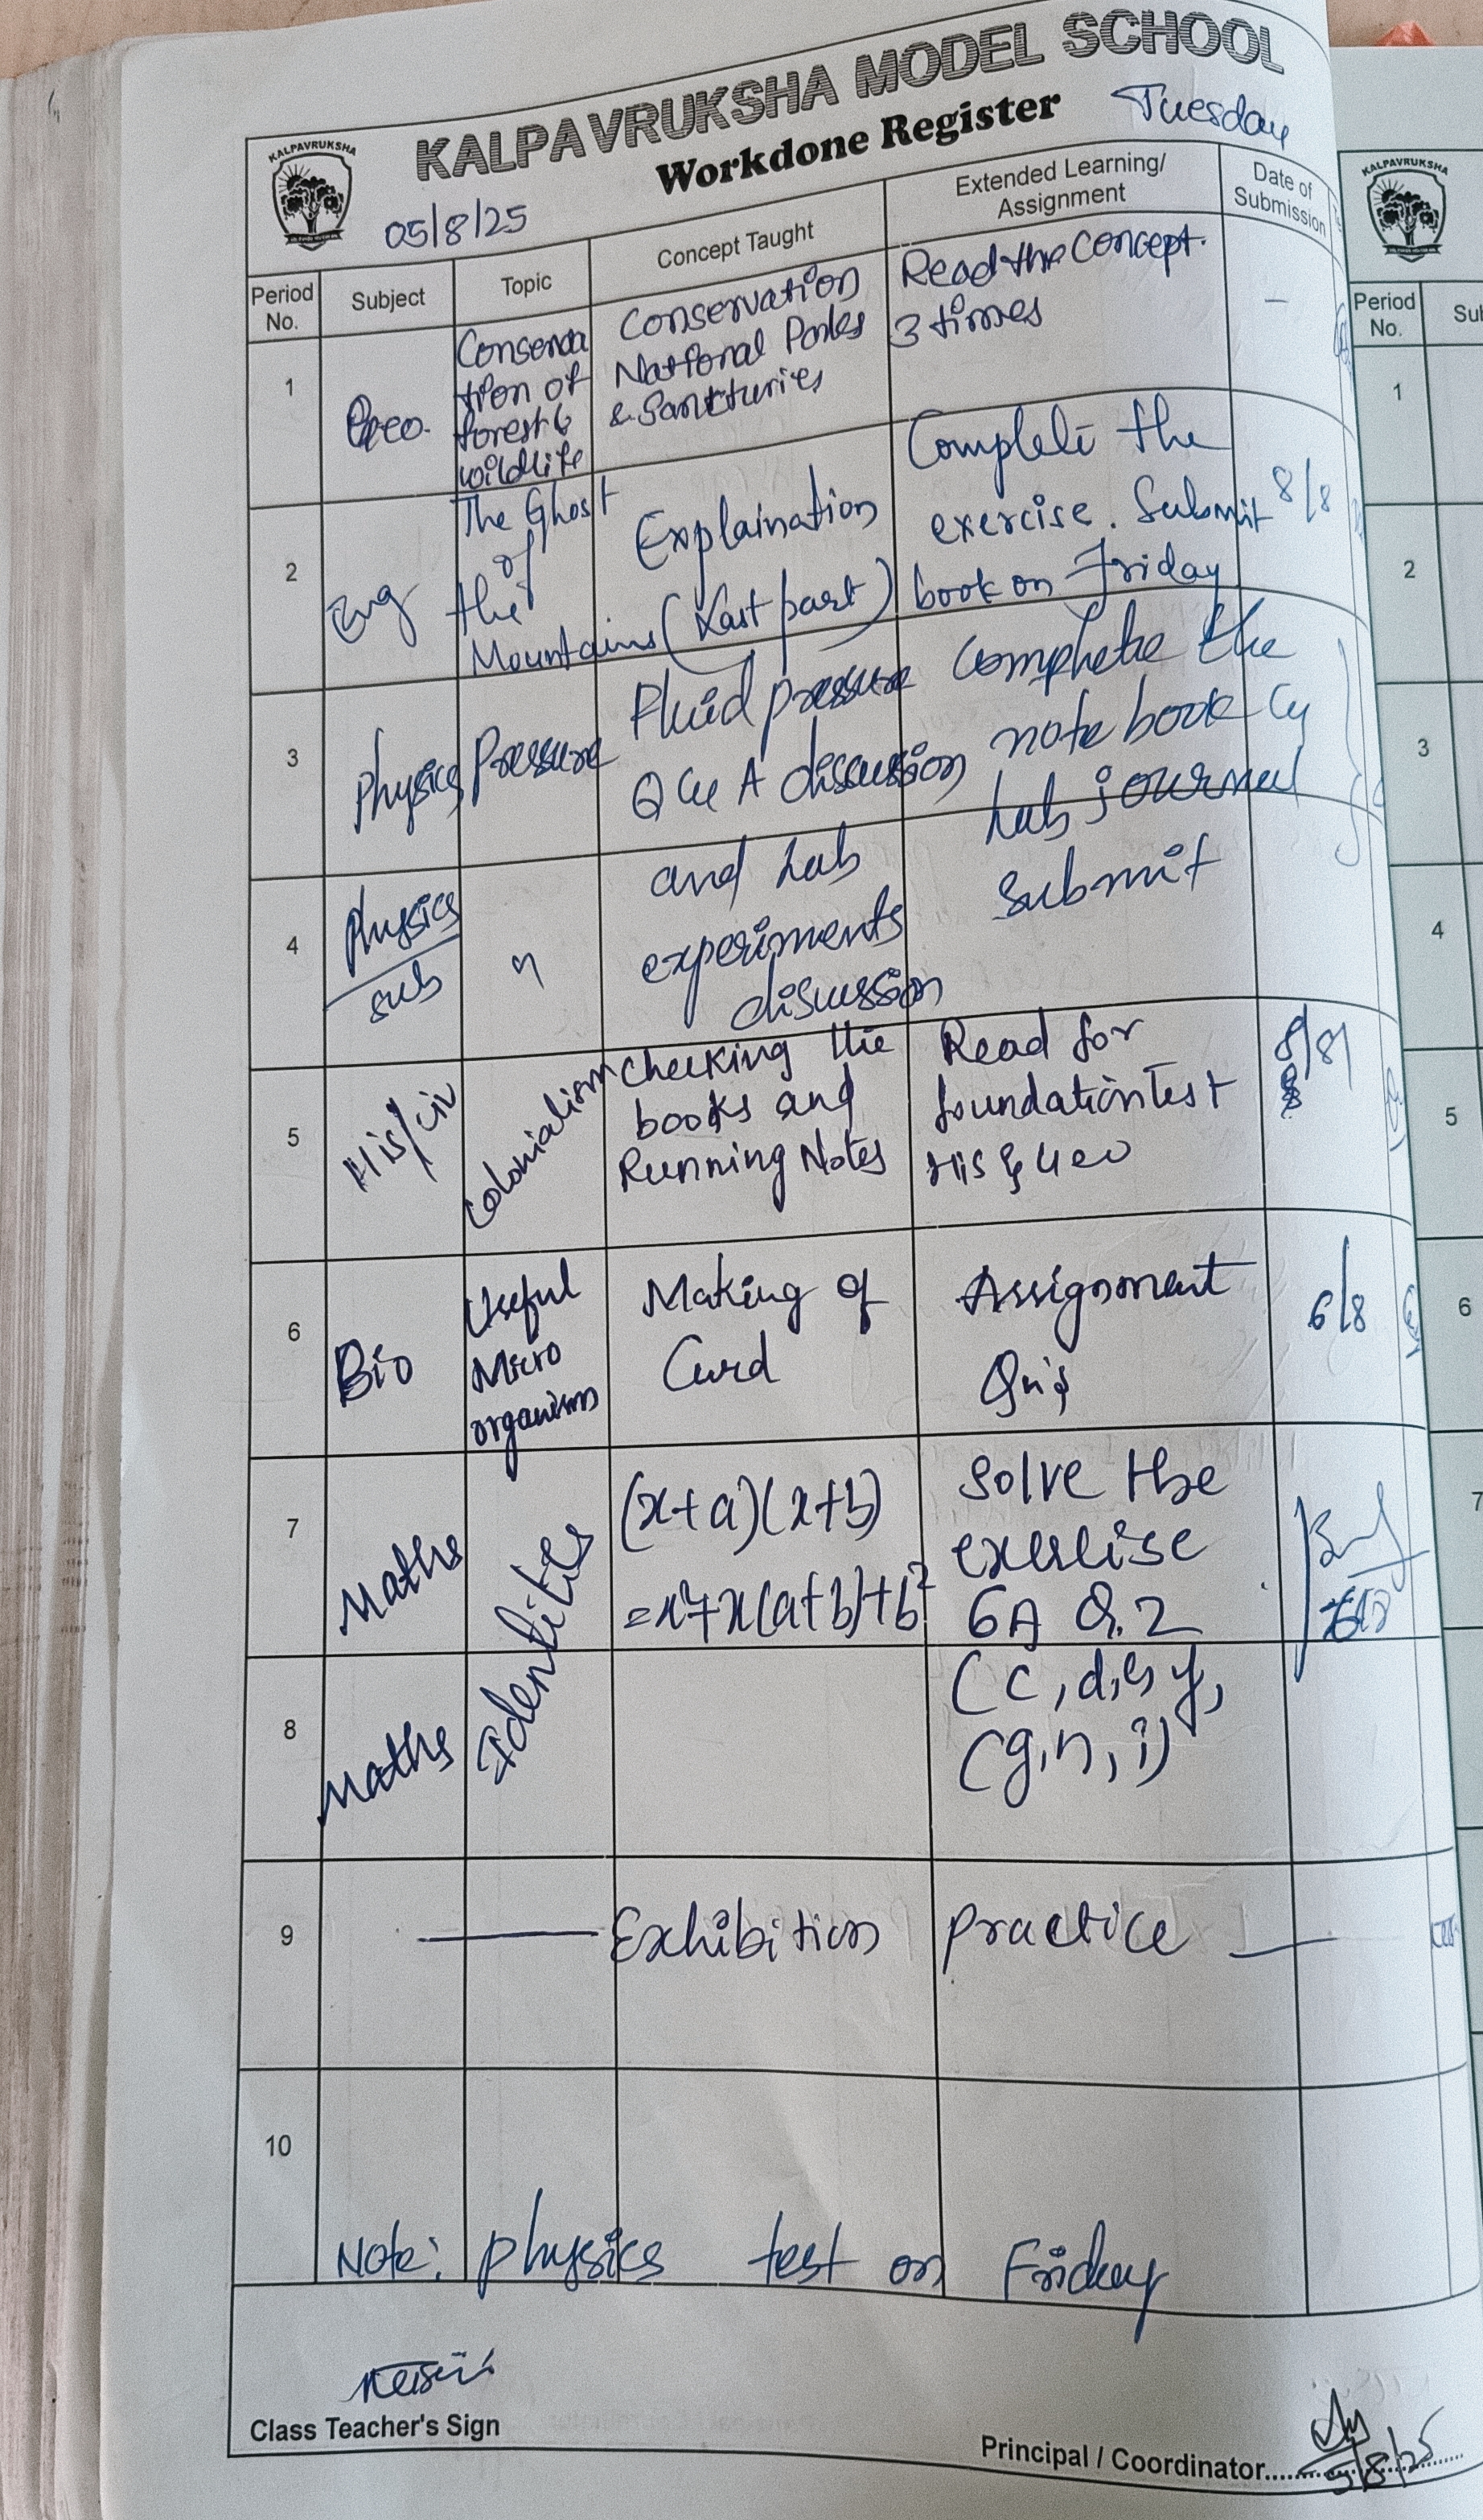 KALPAVRUKSHA MODEL SCHOOL
Workdone Register
Tuesday
KALPAVRUKSHA
05/8/25
Period No.
Subject
Topic
Concept Taught
Extended Learning/
Assignment
Date of
Submission
1
Geo.
Conserva
tion of
forest &
wildlife
Conservation
National Parks
& Sankturies
Read the concept.
3 times
–
2
Eng
The Ghost
of
the
Mountains
Explaination
(Last part)
Complete the
exercise. Submit
book on Friday
8/8
3
Physics
Pressure
Fluid pressure
Q & A discussion
Complete the
note book &
Lab journal
4
Physics
sub
"
and Lab
experiments
discussion
Submit
5
His/civ
Colonialism
Checking the
books and
Running Notes
Read for
foundation Test
His & Geo
8/8
6
Bio
Useful
Micro
organism
Making of
Curd
Assignment
Qn's
6/8
7
Maths
Identities
(x+a)(x+b)
=x²+x(a+b)+b²
Solve the
exercise
6A Q.2
8
Maths
(c, d, e, f,
(g, h, i)
9
— Exhibition practice —
10
Note: physics test on Friday
Class Teacher's Sign
Principal / Coordinator
5/8/25
KALPAVRUKSHA
Period
No.
1
2
3
4
5
6
7